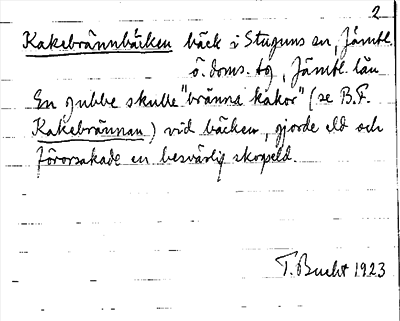 2
Kakebrännbäcken bäck i Stuguns sn, Jämtl.
ö. doms. tg, Jämtl. län
En gubbe skulle "bränna kakor" (se B.F.
Kakebrännan) vid bäcken, gjorde eld och
förorsakade en besvärlig skogseld.
T. Bucht 1923